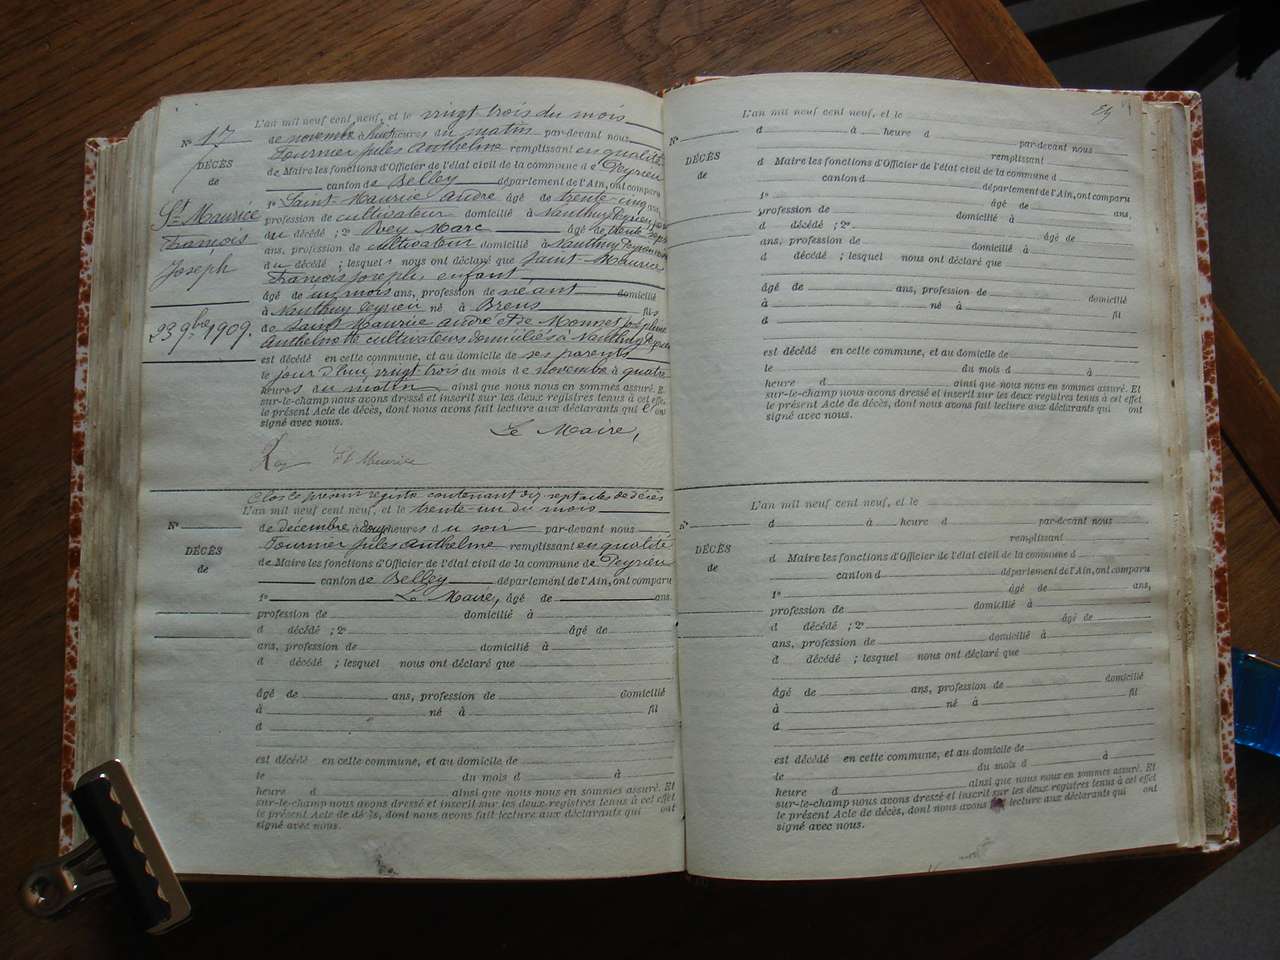 N° 17
DÉCÈS
de
St Maurice
François
Joseph
23 9bre 1909.
L'an mil neuf cent neuf, et le vingt trois du mois
de novembre à huit heures du matin par-devant nous
Fournier Jules Anthelme remplissant en qualité
de Maire les fonctions d'Officier de l'état civil de la commune de Peyrieu
canton de Belley département de l'Ain, ont comparu
1° Saint-Maurice André âgé de trente-cinq ans,
profession de cultivateur domicilié à Nanthuy Peyrieu
du décédé ; 2° Rey Marc âgé de trente sept
ans, profession de cultivateur domicilié à Nanthuy Peyrieu
du décédé ; lesquels nous ont déclaré que Saint-Maurice
François Joseph, enfant
âgé de un mois ans, profession de néant domicilié
à Nanthuy Peyrieu né à Brens fils
de Saint Maurice André et de Monnet
Anthelmette cultivateurs domiciliés à Nanthuy Peyrieu
est décédé en cette commune, et au domicile de ses parents
le jour d'hui vingt trois du mois de novembre à quatre
heures du matin ainsi que nous nous en sommes assuré. Et
sur-le-champ nous avons dressé et inscrit sur les deux registres tenus à cet effet
le présent Acte de décès, dont nous avons fait lecture aux déclarants qui ont
signé avec nous.
Le Maire,
Rey St Maurice
Clos le présent registre contenant dix sept actes de décès
N°
DÉCÈS
de
L'an mil neuf cent neuf, et le trente-un du mois
de décembre à douze heures du soir par-devant nous
Fournier Jules Anthelme remplissant en qualité
de Maire les fonctions d'Officier de l'état civil de la commune de Peyrieu
canton de Belley département de l'Ain, ont comparu
1° Le Maire, âgé de ans,
profession de domicilié à
d décédé ; 2° âgé de
ans, profession de domicilié à
d décédé ; lesquel nous ont déclaré que
âgé de ans, profession de domicilié
à né à fil
d
est décédé en cette commune, et au domicile de
le du mois d à
heure d ainsi que nous nous en sommes assuré. Et
sur-le-champ nous avons dressé et inscrit sur les deux registres tenus à cet effet
le présent Acte de décès, dont nous avons fait lecture aux déclarants qui ont
signé avec nous.
N°
DÉCÈS
de
L'an mil neuf cent neuf, et le
d à heure d par-devant nous
remplissant
d Maire les fonctions d'Officier de l'état civil de la commune d
canton d département de l'Ain, ont comparu
1° âgé de ans,
profession de domicilié à
d décédé ; 2° âgé de
ans, profession de domicilié à
d décédé ; lesquel nous ont déclaré que
âgé de ans, profession de domicilié
à né à fil
d
est décédé en cette commune, et au domicile de
le du mois d à
heure d ainsi que nous nous en sommes assuré. Et
sur-le-champ nous avons dressé et inscrit sur les deux registres tenus à cet effet
le présent Acte de décès, dont nous avons fait lecture aux déclarants qui ont
signé avec nous.
N°
DÉCÈS
de
L'an mil neuf cent neuf, et le
d à heure d par-devant nous
remplissant
d Maire les fonctions d'Officier de l'état civil de la commune d
canton d département de l'Ain, ont comparu
1° âgé de ans,
profession de domicilié à
d décédé ; 2° âgé de
ans, profession de domicilié à
d décédé ; lesquel nous ont déclaré que
âgé de ans, profession de domicilié
à né à fil
d
est décédé en cette commune, et au domicile de
le du mois d à
heure d ainsi que nous nous en sommes assuré. Et
sur-le-champ nous avons dressé et inscrit sur les deux registres tenus à cet effet
le présent Acte de décès, dont nous avons fait lecture aux déclarants qui ont
signé avec nous.